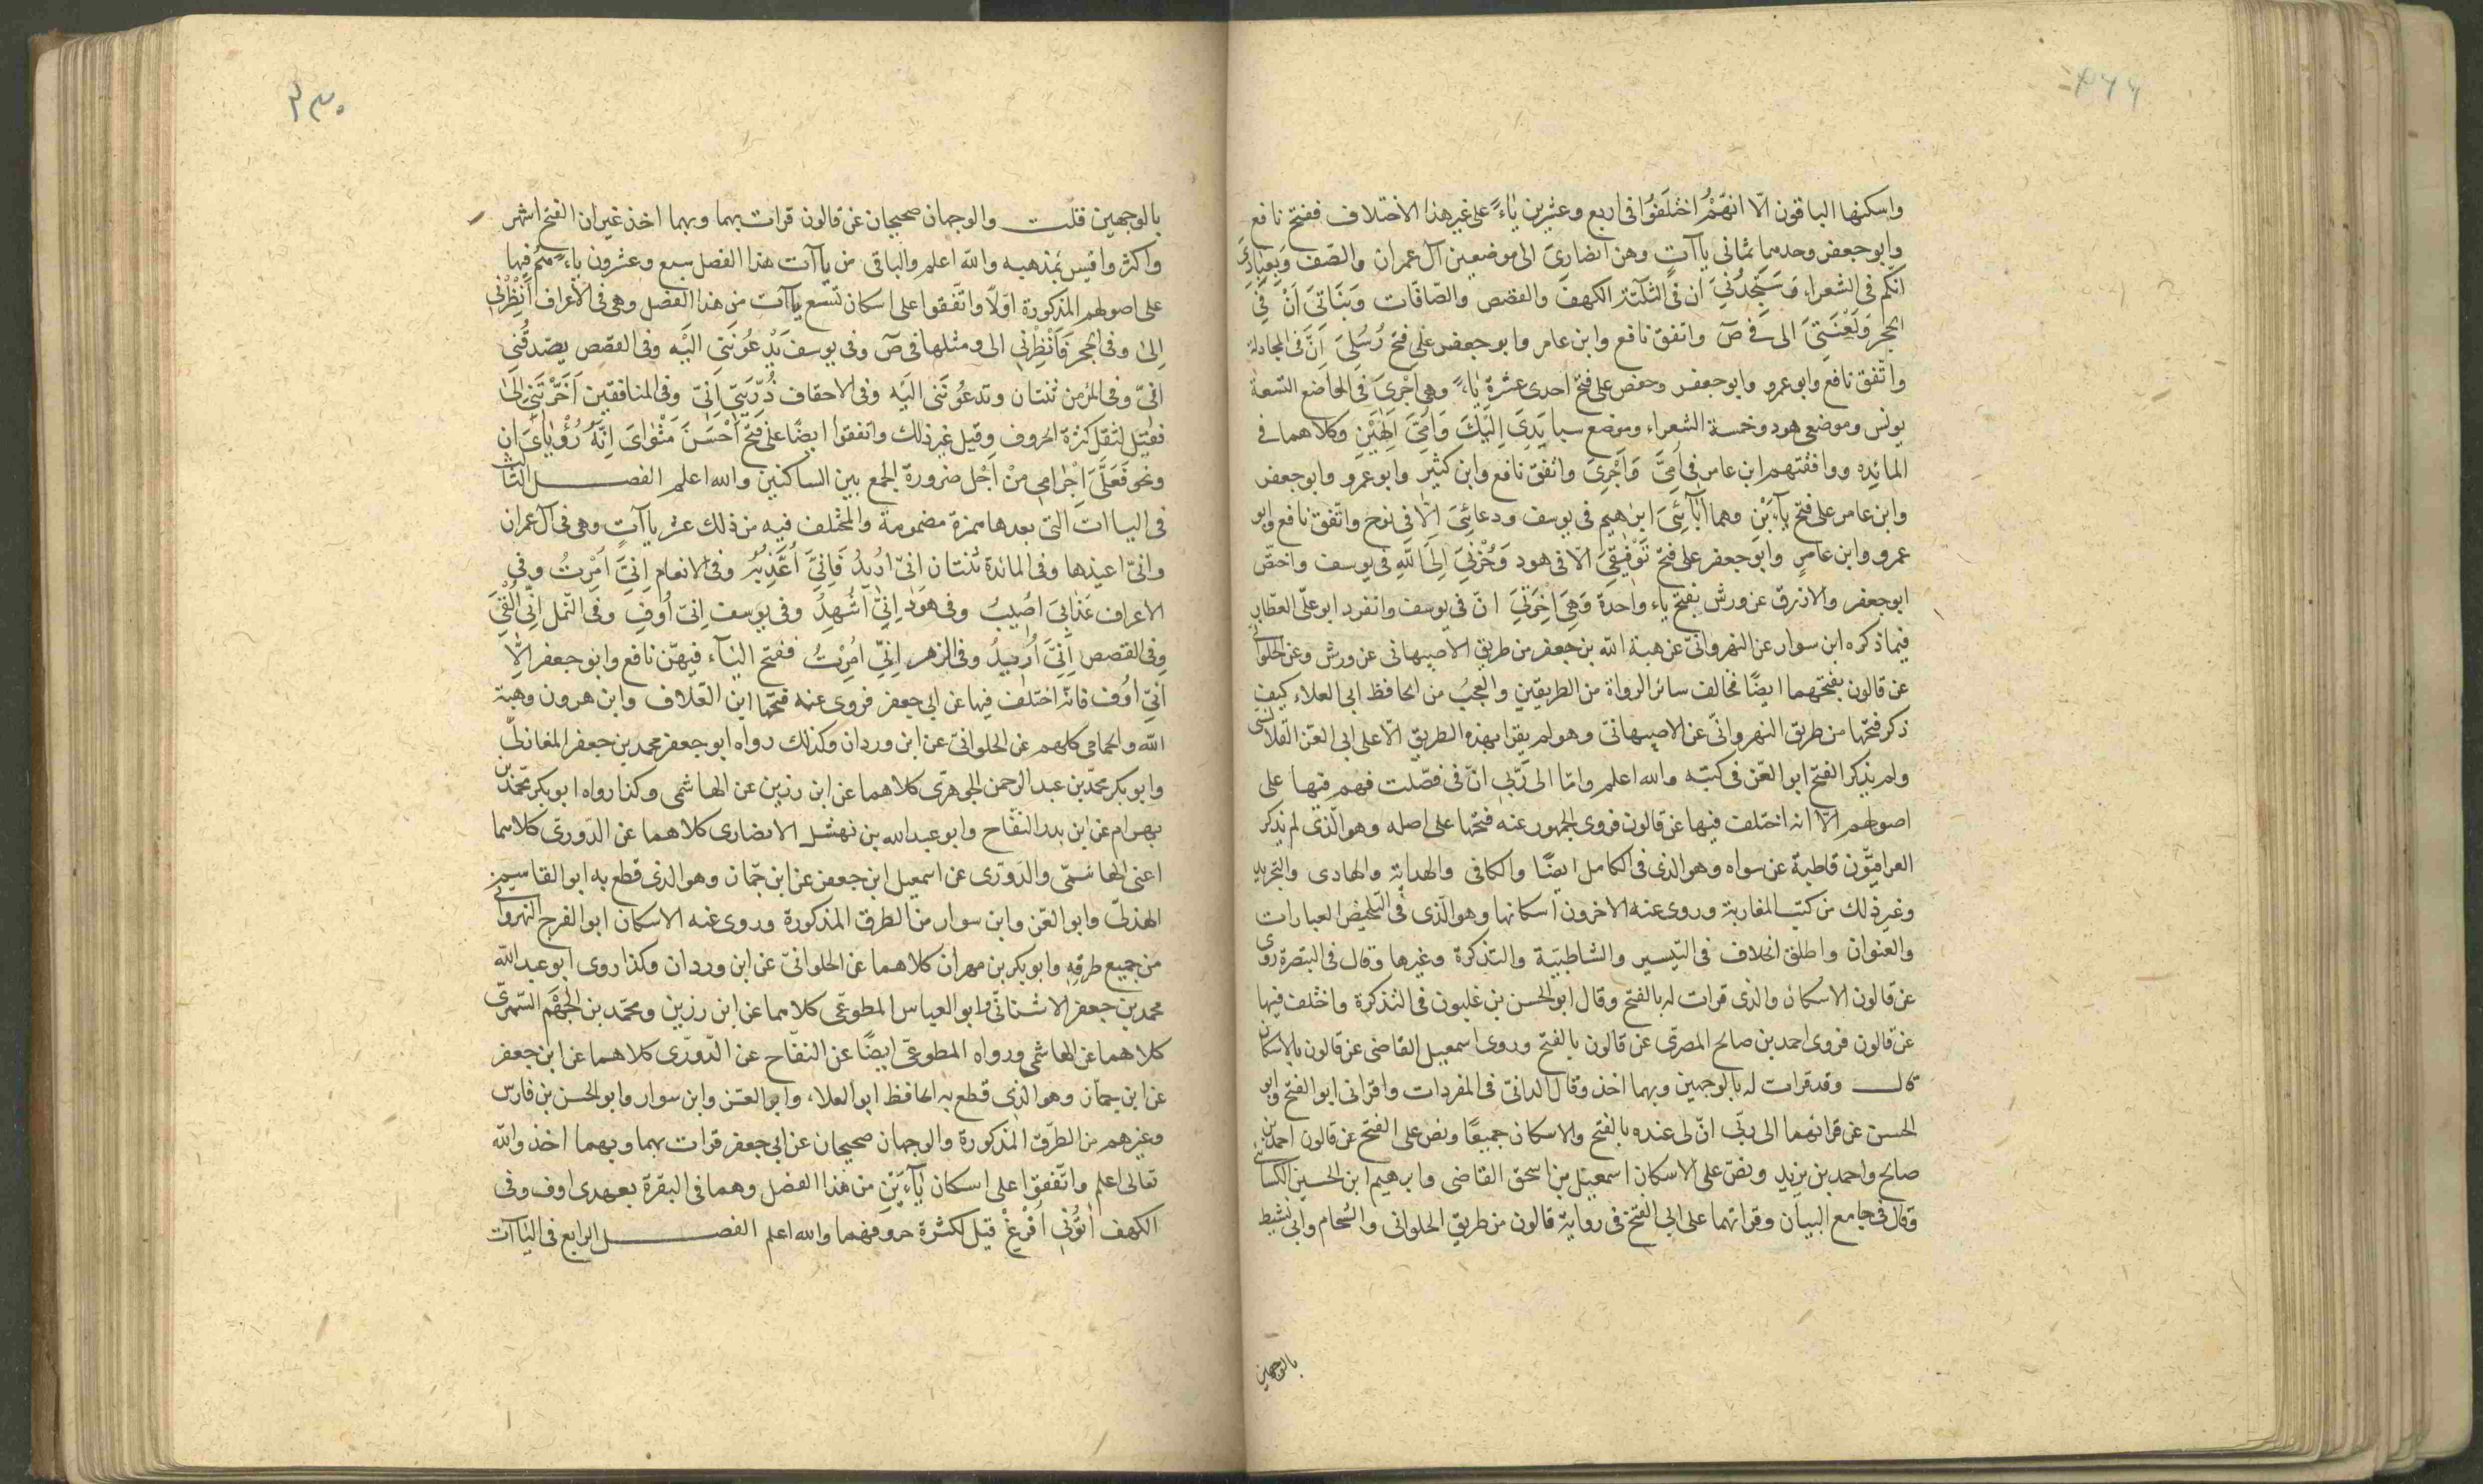 واسكنها الباقون الّا انهّمُ اختَلَفُوا فى اربع وعشرين ياءً على غير هذا الاختلاف ففتح نافع
وابو جعفر وحدهما ثمانى ياآت وهن انصارىَ الى موضعين آل عمران والصّف وَبِعِبَادِىَ
انّكم فى الشعراء وَسَتَجِدُنىَ ان فى الثلثة الكهف والقصص والصّافات وَبَنَاتىَ اَنْ فى
الحجر وَلَعْنَتىَ الى فى صٓ واتفق نافع وابن عامر وابو جعفر على فتح رُسُلىَ اَنَّ فى المجادلة
واتّفق نافع وابو عمرو وابو جعفر وحفص على فتح احدى عشرة ياءً وهى اَجْرىَ فى المواضع التسعة
يونس وموضعى هود وخمسة الشعراء وموضع سبا يَدِىَ اِلَيْكَ وَاُمّىَ اِلٰهَيْنِ وكلاهما فى
المائده ووافقتهم ابن عامر فى اُمّىَ وَاَجْرِىَ واتفق نافع وابن كثير وابو عمرو وابو جعفر
وابن عامر على فتح يآءَيْنِ وهما اٰبآئِىَ ابرٰهيم فى يوسف ودعائِىَ اِلّا فى نوح واتّفق نافع وابو
عمرو وابن عامرٍ وابو جعفر على فتح تَوْفيقىَ الّا فى هود وَحُزْنىَ اِلَى اللّهِ فى يوسف واختصّ
ابو جعفر والازرق عن ورش بفتح ياء واحدة وَهِىَ اِخْوَتىَ انّ فى يوسف وانفرد ابو علىّ العطار
فيما ذكره ابن سوار عن النهروانىّ عن هبة الله بن جعفر من طريق الاصبهانى عن ورش وعن الحلوانى
عن قالون بفتحهما ايضًا فخالف سائر الرواة من الطريقين والعجبُ من الحافظ ابى العلاء كيف
ذكر فتحها من طريق النهروانىّ عن الاصبهانىّ وهو لم يقرا بهذه الطريق الّا على ابى العزّ القلانسى
ولم يذكر الفتح ابو العّز فى كتبّه والله اعلم وامّا الى رَبّى انّ فى فصّلت فهم فيها على
اصولهم الّا انه اختلف فيها عن قالون فروى الجمهور عنه فتحها على اصله وهو الّذى لم يذكر
العراقيّون قاطبة عن سواه وهو الذى فى الكامل ايضًا والكافى والهداية والهادى والتجريد
وغير ذلك من كتب المغاربة وروى عنه الاخرون اسكانها وهو الّذى فى التلخيص العبارات
والعنوان واطلق الخلاف فى التّيسير والشاطبيّة والتّذكرة وغيرها وقال فى التبصرة روى
عن قالون الاسكان والذى قرات له بالفتح وقال ابو الحسن بن غلبون فى التذكرة واختلف فيها
عن قالون فروى احمد بن صالح المصرىّ عن قالون بالفتح وروى اسمعيل القاضى عن قالون بالاسكان
قال وقد قرات له بالوجهين وبهما اخذ وقال الدانىّ فى المفردات واقرانى ابو الفتح وابو
الحسن عن قرائتهما الى ربّى انّ لى عنده بالفتح والاسكان جميعًا ونص على الفتح عن قالون احمد بن
صالح واحمد بن يزيد ونصّ على الاسكان اسمعيل بن اسحق القاضى وابرهيم ابن الحسين الكسائى
وقال فى جامع البيان وقراتهما على ابى الفتح فى رواية قالون من طريق الحلوانى والشحام وابى نشيط
بالوجهين
٢٣٠
بالوجهين قلت والوجهان صحيحان عن قالون قرات بهما وبهما اخذ غير ان الفتح اشهر
واكثر واقيس بمذهبه والله اعلم والباقى من ياآت هذا الفصل سبع وعشرون ياءً هم فيها
على اصولهم المذكورة اوّلًا واتّفقوا على اسكان تسّع ياآت من هذا الفصل وهى فى الاعراف اَنْظِرْنى
اِلىٰ وفى الحجر فَاَنْظِرْنى الى ومثلها فى صٓ وفى يوسف يَدْعُونَنى اليْه وفى القصص يصّدقُنى
انّى وفى المؤمن ثنتان وتدعُونَنى اليْه وفى الاحقاف ذُرّيَتى اِنّى وفى المنافقين اَخَّرْتَنى اِلىٰ
فقيل لثقل كثرة الحروف وقيل غير ذلك واتفقوا ايضًا على فتح اَحْسَنَ مَثْوٰاىَ اِنَّهُ رُؤْيٰاىَ ان
ونحو فَعَلَىَّ اِجْرٰامى مِنْ اَجْل ضرورة الجمع بين الساكنين والله اعلم الفصل الثالث
فى الياات التى بعدها همزة مضمومة والمختلف فيه من ذلك عشر ياآتٍ وهى فى آل عمران
وانىّ اعيذها وفى المائدة ثنتان انىّ اُرُيدُ فَاِنىّ اُعَذِّبُهُ وفى الانعام اِنىّ اُمِرْتُ وفى
الاعراف عَذَابىَ اُصيبُ وفى هود اِنىّ اُشْهِدُ وفى يوسف اِنىّ اُوفى وفى النّمل اِنّى اُلْقِىَ
وفى القصص اِنىّ اُرُيدُ وفى الزهر اِنىّ اُمِرْتُ ففتح الياء فيهّن نافع وابو جعفر اِلّا
اَنىّ اُوف فانّه اختلف فيها عن ابى جعفر فروى عنه فتحها ابن العّلاف وابن هرون وهبة
اللّه والحمامى كلهم عن الحلوانىّ عن ابن وردان وكذلك رواه ابو جعفر محمد بن جعفر المغازلىّ
وابو بكر محمّد بن عبد الرحمن الجوهرىّ كلاهما عن ابن رزين عن الهاشمى وكذا رواه ابو بكر محمّد بن
بهرام عن ابن بدر النّفّاح وابو عبد الله بن نهشل الانصارى كلاهما عن الدّورىّ كلاهما
اعنى الهاشمىّ والدّورّى عن اسمعيل ابن جعفر عن ابن جمّان وهو الذى قطع به ابو القاسم
الهذلىّ وابو العّز وابن سوار من الطرق المذكورة وروى عنه الاسكان ابو الفرج النهروانى
من جميع طرقه وابو بكر بن مهران كلاهما عن الحلوانىّ عن ابن وردان وكذا روى ابو عبد الله
محمد بن جعفر الاشنانىّ وابو العباس المطوعّى كلاهما عن ابن رزين ومحمّد بن الجَهْم السّمرىّ
كلاهما عن الهاشمى ورواه المطوعىّ ايضًا عن النفّاح عن الدّورّى كلاهما عن ابن جعفر
عن ابن جمان وهو الذى قطع به الحافظ ابو العلاء وابو العّز وابن سوار وابو الحسن بن فارس
وغيرهم من الطرّق المذكورة والوجهان صحيحان عن ابى جعفر قرات بهما وبهما اخذ والله
تعالى اعلم واتّفقوا على اسكان يآءَيْنِ من هذا الفصل وهما فى البقرة بعهدى اوف وفى
الكهف اٰتُونى اُفْرِغْ قيل لكثرة حروفهما والله اعلم الفصل الرابع فى الياآت